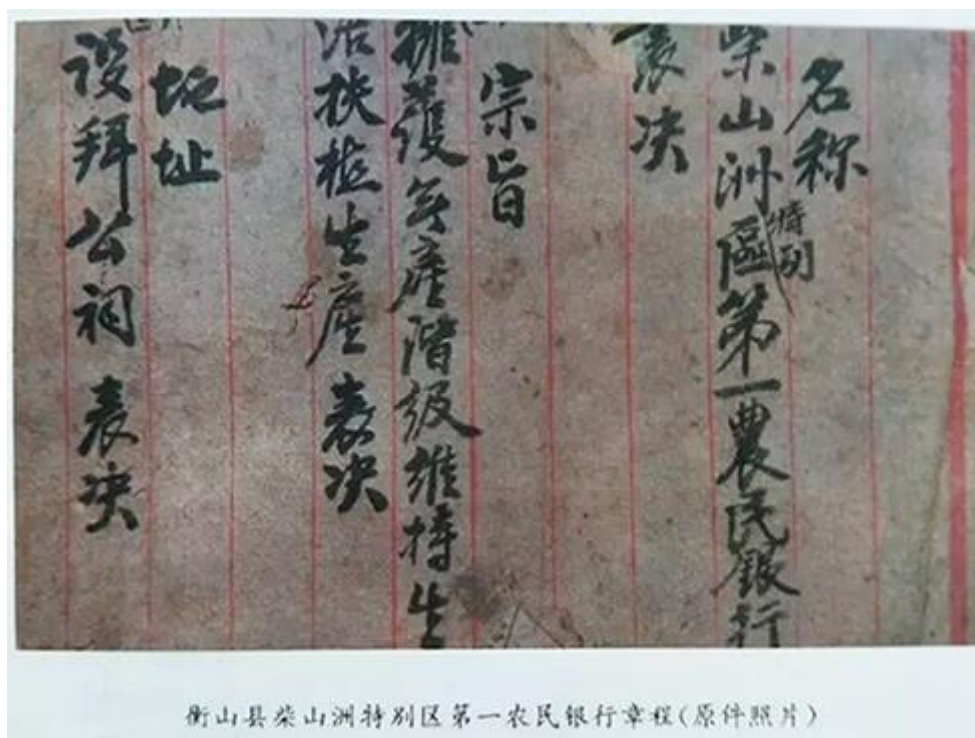 名称
柴山洲特别區第一農民银行
表决
宗旨
擁護无產階级维持生
活扶植生產 表决
地址
设拜公祠 表决
衡山县柴山洲特别区第一农民银行章程(原件照片)